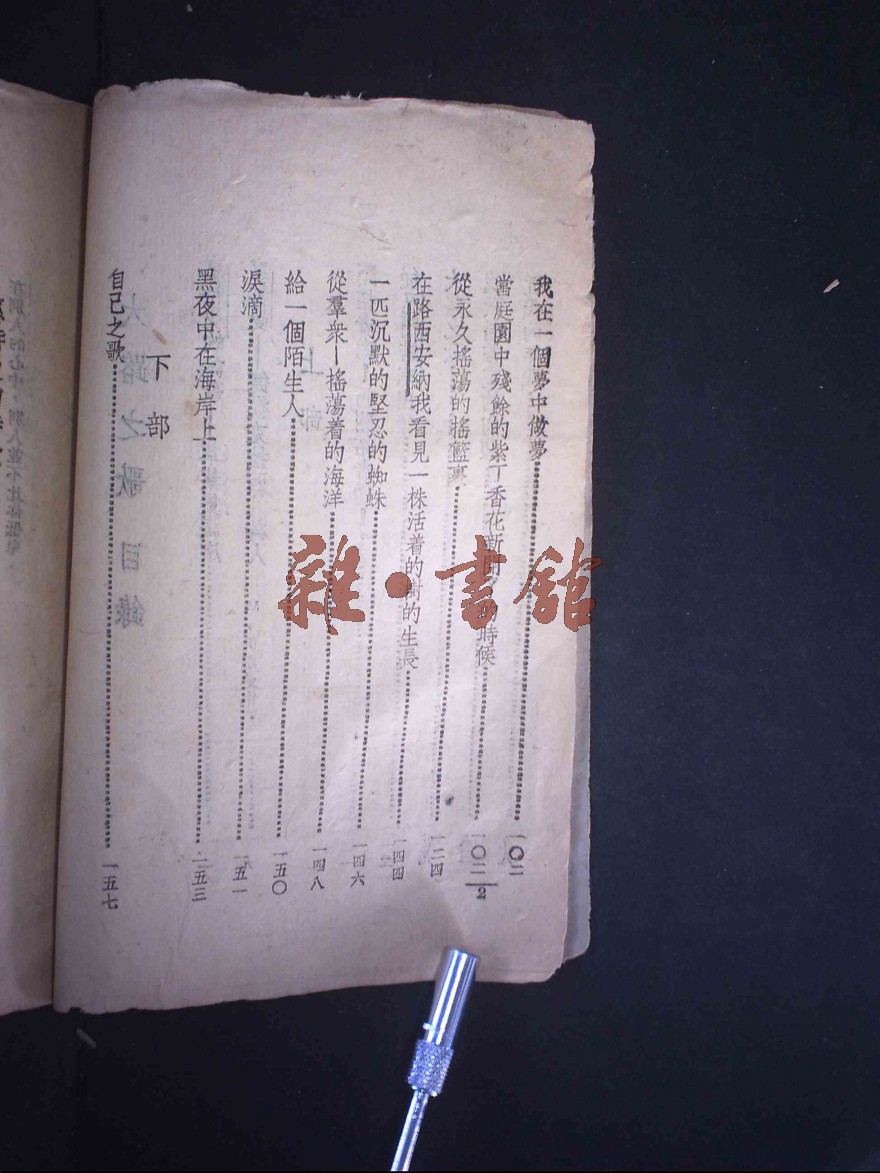 我在一個夢中做夢……一〇二
當庭園中殘餘的紫丁香花新開了的時候……一〇二—2
從永久搖蕩的搖籃裏……一二四
在路西安納我看見一株活着的樹的生長……一四四
一匹沉默的堅忍的蜘蛛……一四六
從羣衆—搖蕩着的海洋……一四八
給一個陌生人……一五〇
淚滴……一五一
黑夜中在海岸上……一五三
下部
自己之歌……一五七
大路之歌目錄
上部
雜·書館